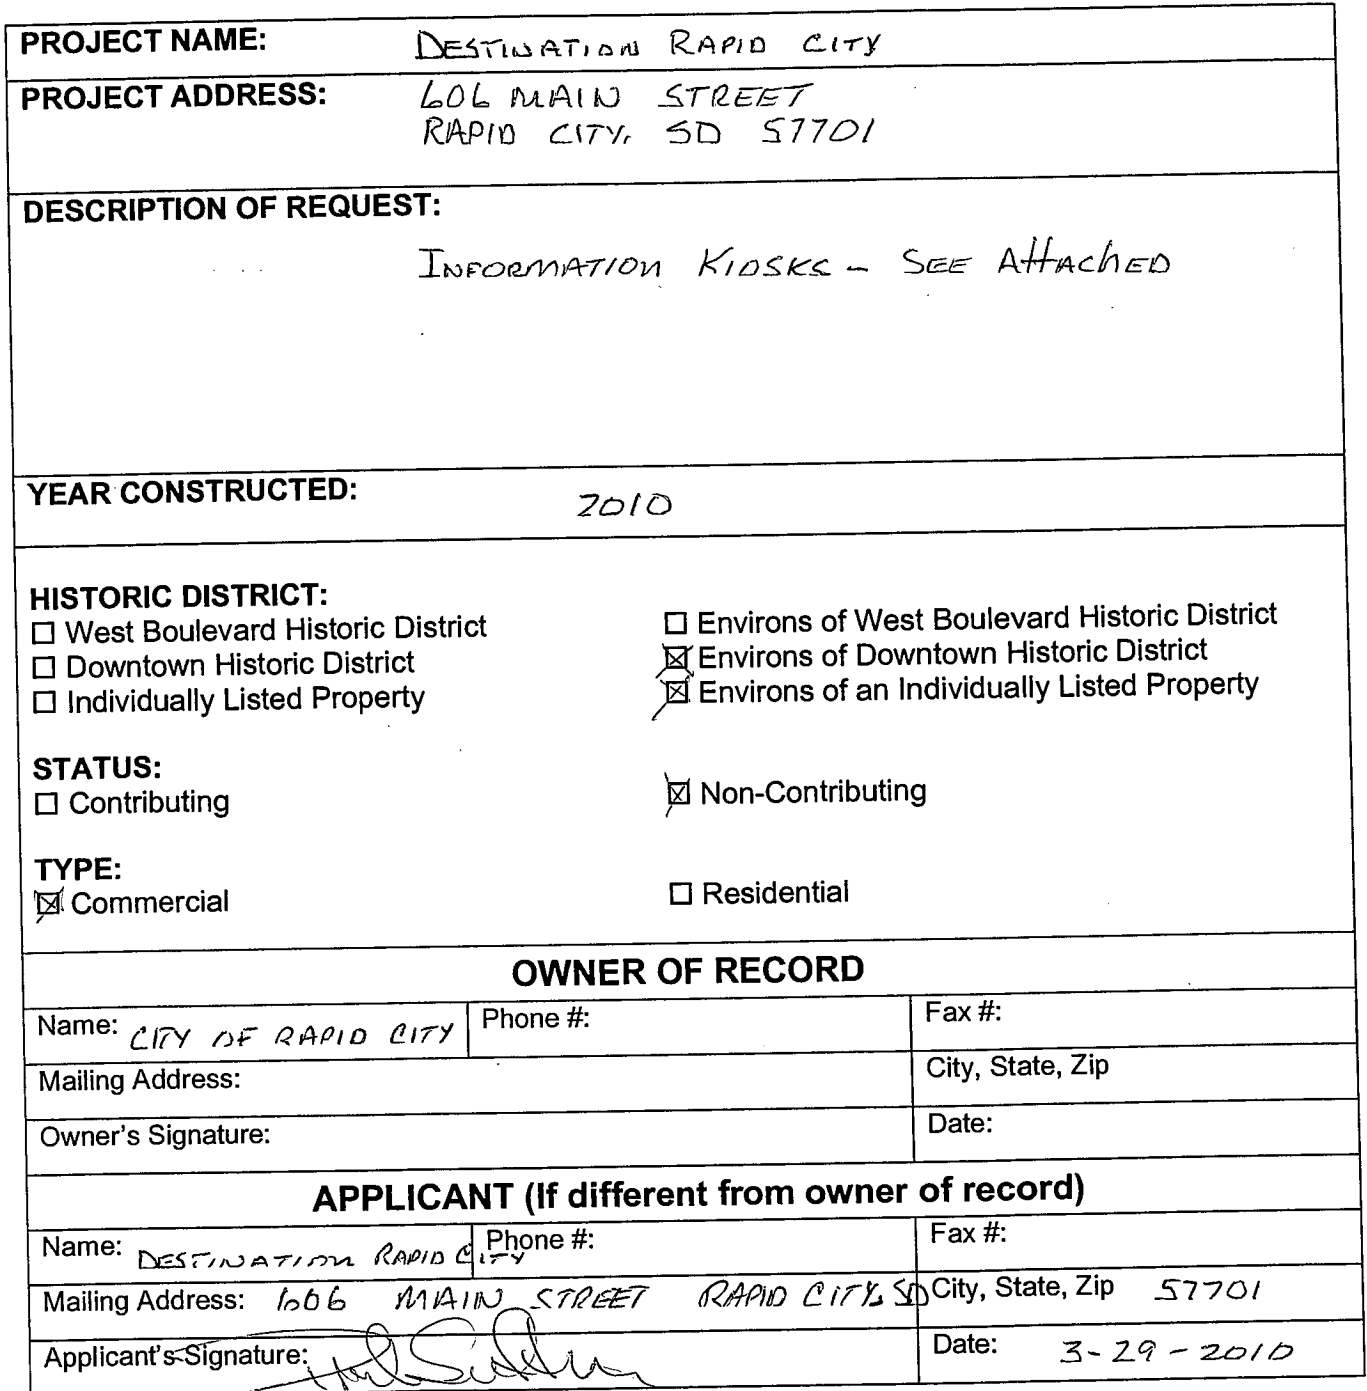 PROJECT NAME: DESTINATION RAPID CITY
PROJECT ADDRESS: 606 MAIN STREET
RAPID CITY, SD 57701
DESCRIPTION OF REQUEST:
INFORMATION KIOSKS - SEE AttAchED
YEAR CONSTRUCTED: 2010
HISTORIC DISTRICT:
☐ West Boulevard Historic District ☐ Environs of West Boulevard Historic District
☐ Downtown Historic District ☒ Environs of Downtown Historic District
☐ Individually Listed Property ☒ Environs of an Individually Listed Property
STATUS:
☐ Contributing ☒ Non-Contributing
TYPE:
☒ Commercial ☐ Residential
OWNER OF RECORD
Name: CITY OF RAPID CITY Phone #: Fax #:
Mailing Address: City, State, Zip
Owner's Signature: Date:
APPLICANT (If different from owner of record)
Name: DESTINATION RAPID CITY Phone #: Fax #:
Mailing Address: 606 MAIN STREET RAPID CITY, SD City, State, Zip 57701
Applicant's Signature: Date: 3-29-2010